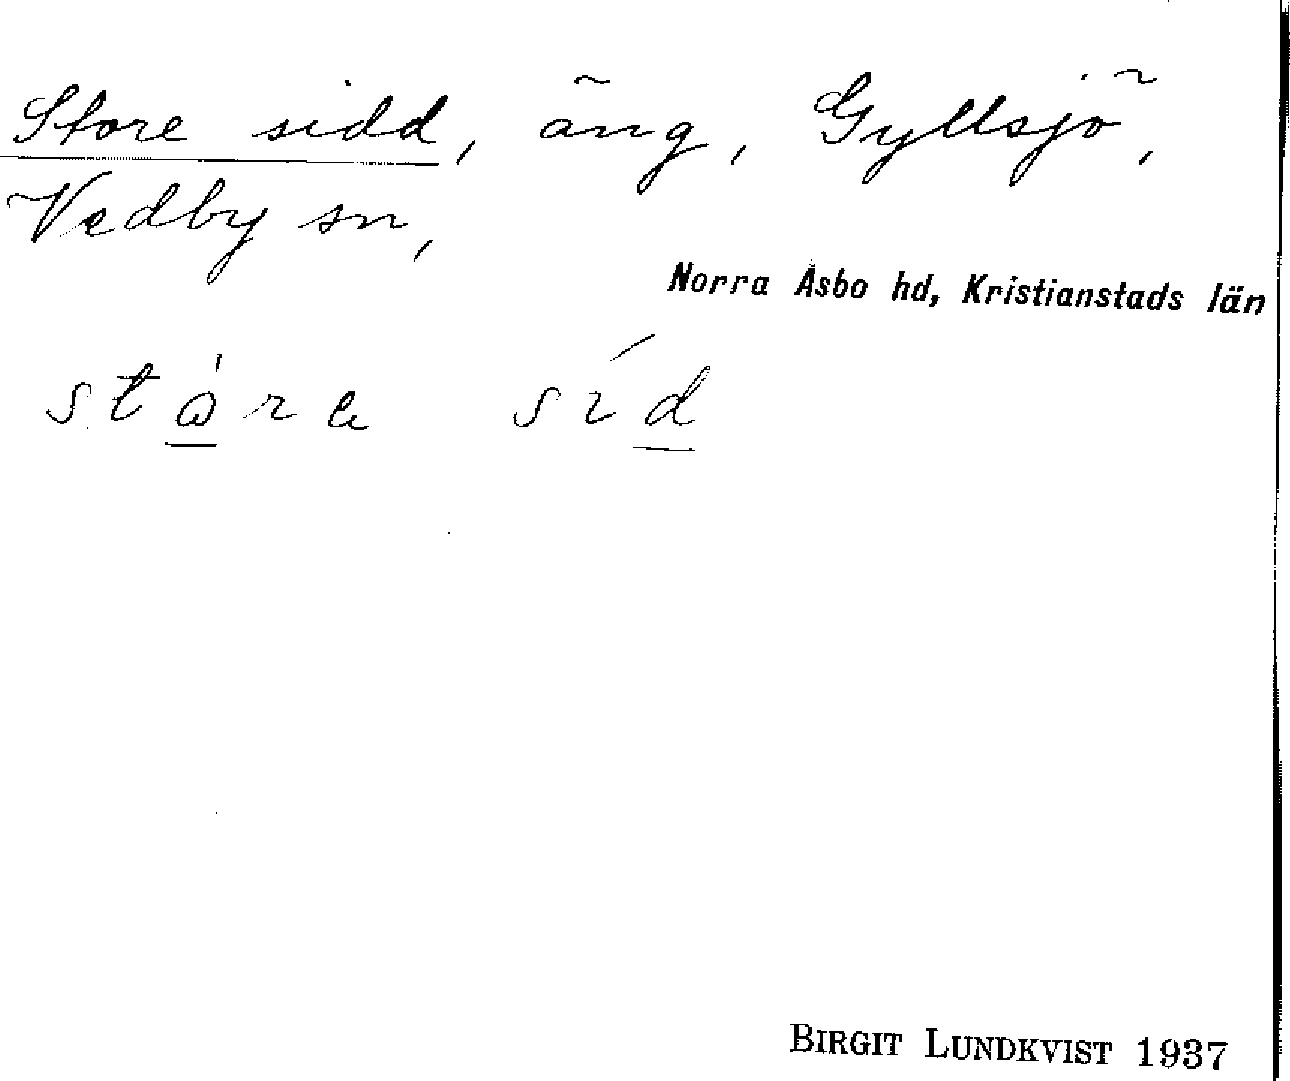 Store sidd, äng, Gyllsjö,
Vedby sn,
Norra Åsbo hd, Kristianstads län
stòra síd
BIRGIT LUNDKVIST 1937